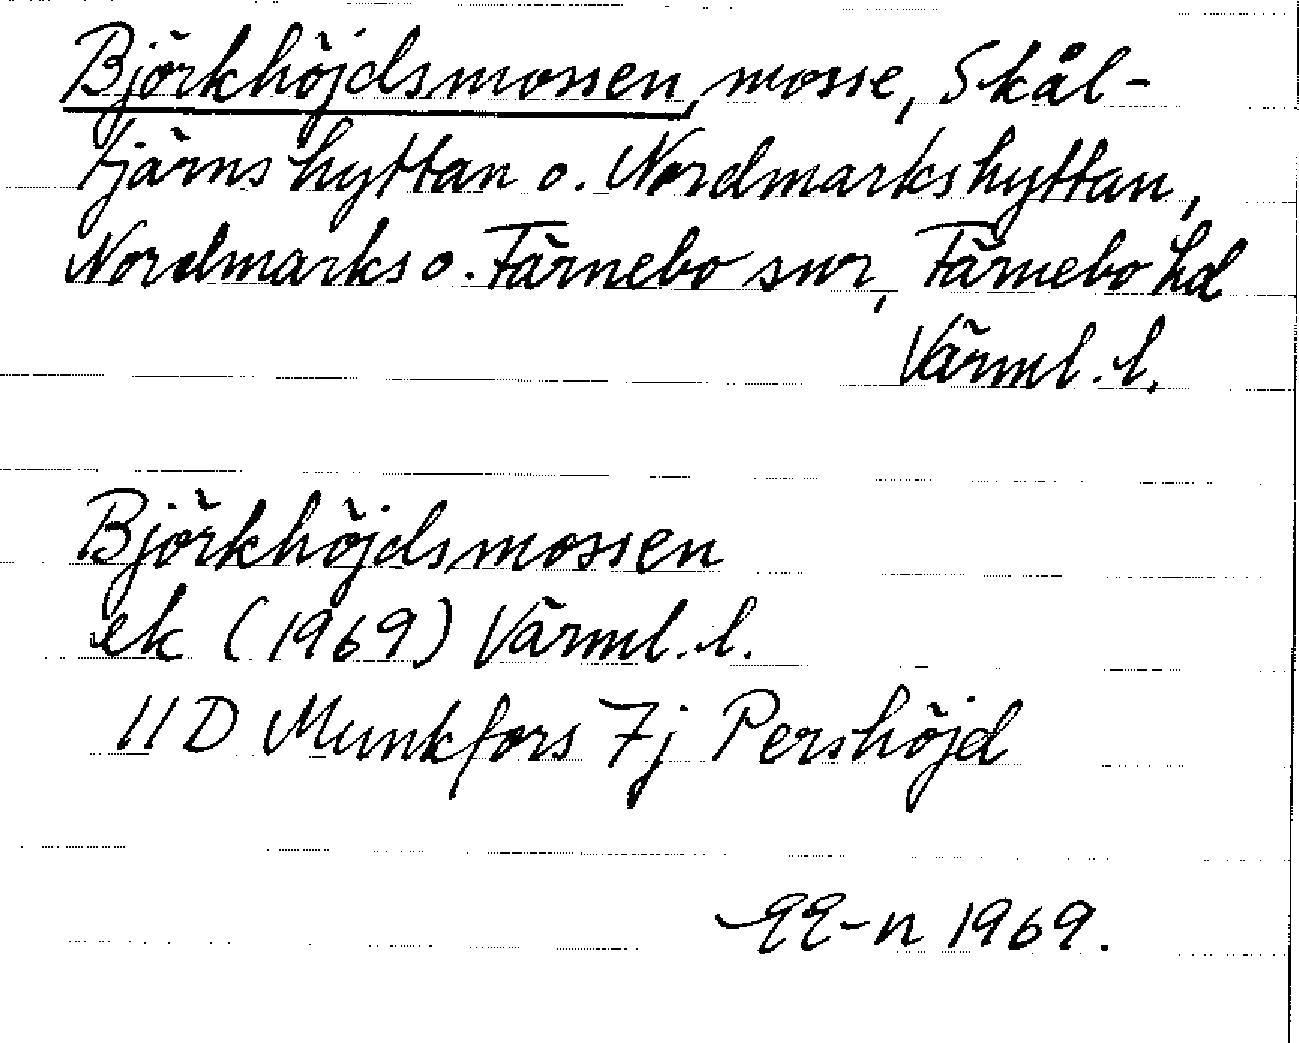 Björkhöjdsmossen, mosse, Skål-
tjärnshyttan o. Nordmarkshyttan,
Nordmarks o. Färnebo snr, Färnebo hd
Värml. l.
Björkhöjdsmossen
ek (1969) Värml. l.
11D Munkfors 7j Pershöjd
EE-n 1969.